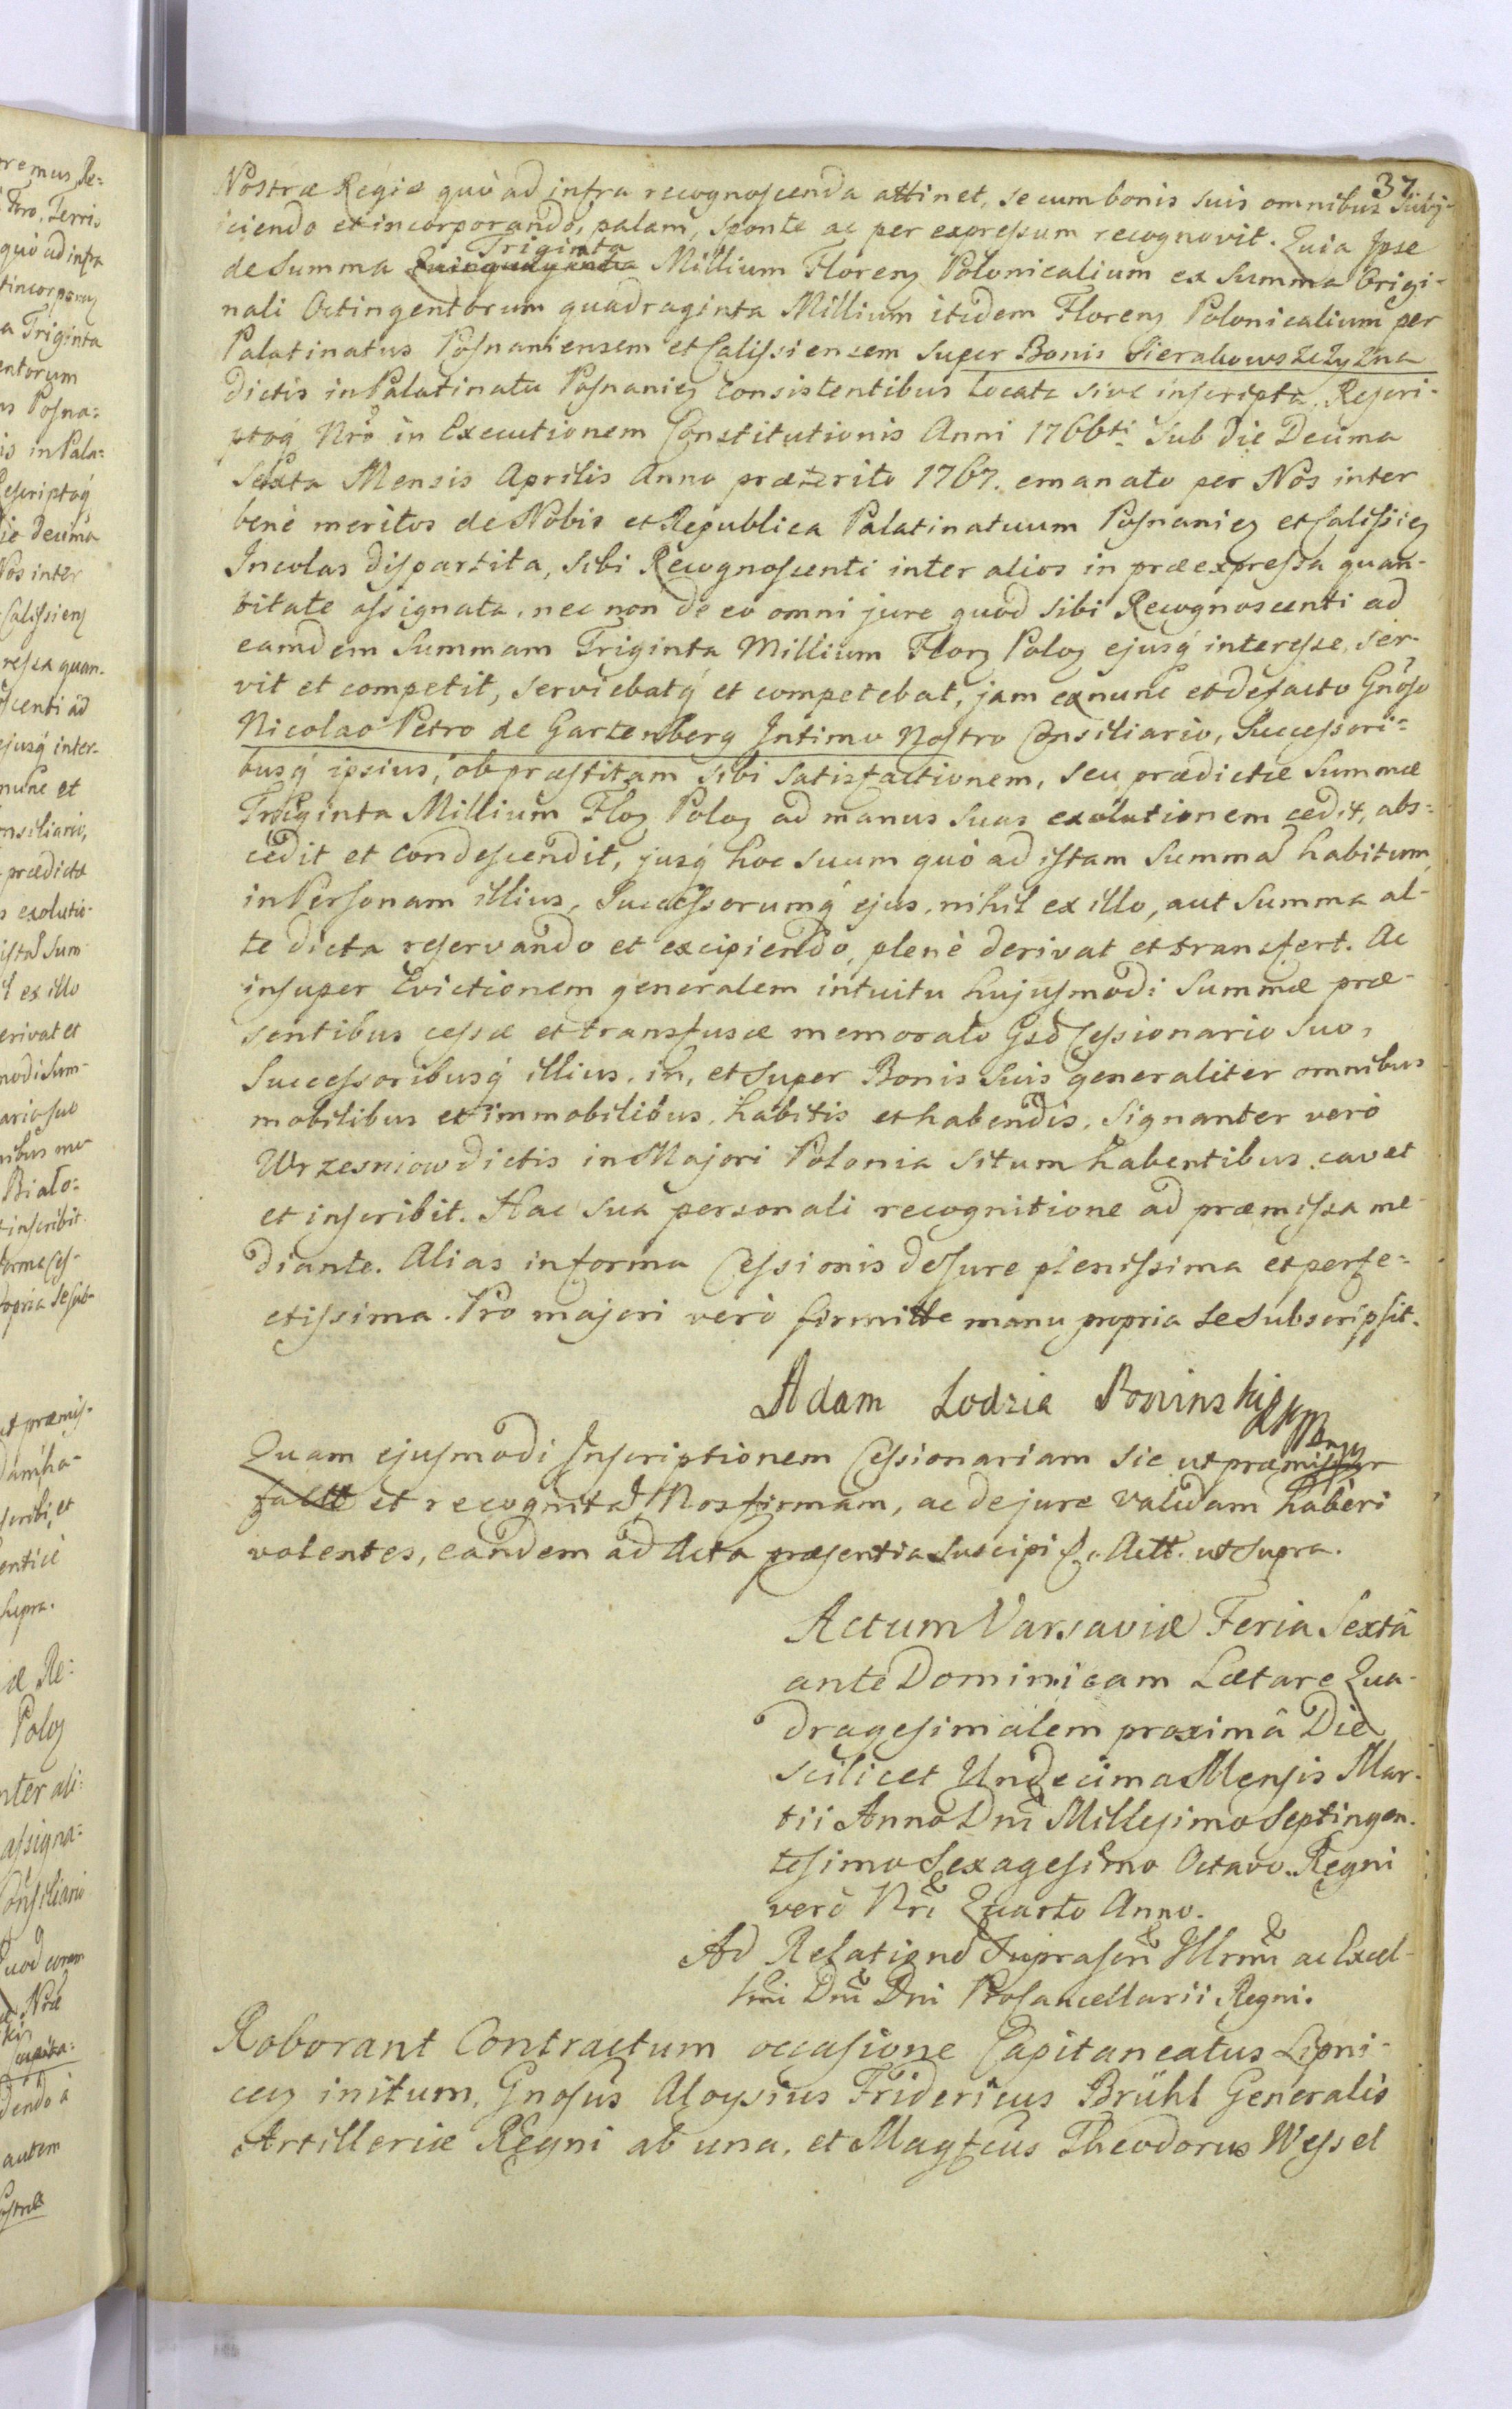 37.
Nostræ Regiæ quò ad infra recognoscenda attinet, se cum bonis suis omnibus subij-
ciendo et incorporando, palam, sponte ac per expressum recognovit. Quia Ipse
Triginta
de Summa Quinquaginta Millium Floren Polonicalium ex Summa Origi-
nali Octingentorum quadraginta Millium itidem Floren Polonicalium per
Palatinatus Posnaniensem et Calissiensem super Bonis Sierakowszczyzna
dictis in Palatinatu Posnanien consistentibus locata sive inscripta. Rescri-
ptoq Nrô in Executionem Constitutionis Anni 1766ti Sub die Decima
Sexta Mensis Aprilis Anno præterito 1767. emanato per Nos inter
benè meritos de Nobis et Republica Palatinatuum Posnanien et Calissien
Incolas dispartita, sibi Recognoscenti inter alios in præexpressa quan-
titate assignata, nec non de eo omni jure quod sibi Recognoscenti ad
eamdem Summam Triginta Millium Flor Polo ejusq interesse, ser-
vit et competit, serviebatq et competebat, jam ex nunc et de facto Gnoso
Nicolao Petro de Gartenberg Intimo Nostro Consiliario, Successori-
busq ipsius, ob præstitam sibi satisfactionem, seu prædictæ Summæ
Triginta Millium Flo Polo ad manus suas exolutionem cedit, abs-
cedit et condescendit, jusq hoc suum quò ad istam Summa habitum
in Personam illius, Successorumq ejus, nihil ex illo, aut Summa al-
te dicta reservando et excipiendo, plenè derivat et transfert. Ac
insuper Evictionem generalem intuitu hujusmodi Summæ præ-
sentibus cessæ et transfusæ memorato Gso Cessionario suo,
Successoribusq illius, in, et super Bonis suis generaliter omnibus
mobilibus et immobilibus, habitis et habendis, signanter verò
Wrzesniow dictis in Majori Polonia situm habentibus cavet
et inscribit. Hac sua personali recognitione ad præmissa me-
diante. Alias in forma Cessionis de Jure plenissima et perfe-
ctissima. Pro majori verò firmitte manu propria se subscripsit.
Adam Lodzia Poninski
Quam ejusmodi Inscriptionem Cessionariam sic ut præmittitur
fact et recognita, Nos firmam, ac de jure validam haberi
volentes, eandem ad Acta præsentia suscipi &c. Actt. ut supra.
Actum Varsaviæ Feria Sextâ
ante Dominicam Lætare Qua-
dragesimalem proximâ Die
scilicet Undecima Mensis Mar-
tii Anno Dni Millesimo Septingen-
tesimo Sexagesimo Octavo. Regni
verò Nri Quarto Anno.
Ad Relatione Suprascri Illrmi ac Excel-
lmi Dni Dni ProCancellarii Regni.
Roborant Contractum occasione Capitaneatus Lipni-
cen initum, Gnosus Aloysius Fridericus Brühl Generalis
Artilleriæ Regni ab una, et Magfcus Theodorus Wessel